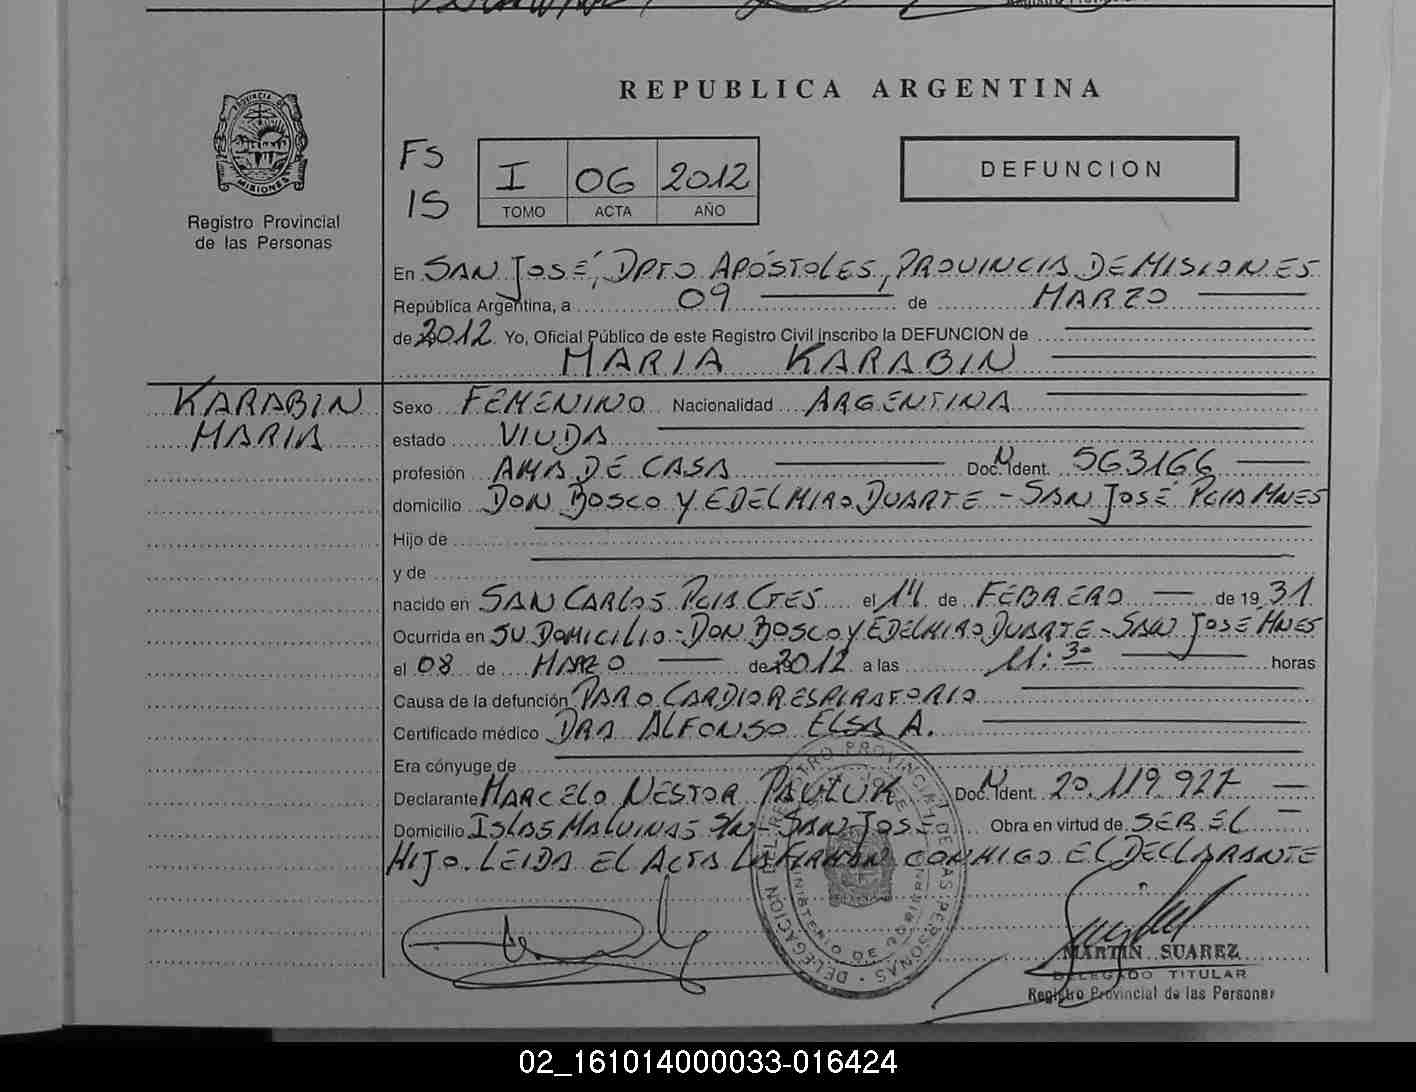 REPUBLICA ARGENTINA
PROVINCIA DE
MISIONES
Registro Provincial
de las Personas
FS
15
I 06 2012
TOMO ACTA AÑO
DEFUNCION
En SAN JOSÉ, DPTO APÓSTOLES, PROVINCIA DE MISIONES
República Argentina, a 09 de MARZO
de 2012 Yo, Oficial Público de este Registro Civil inscribo la DEFUNCION de
MARIA KARABIN
KARABIN
MARIA
Sexo FEMENINO Nacionalidad ARGENTINA
estado VIUDA
profesión AMA DE CASA Doc. Ident. N 563166
domicilio DON BOSCO Y EDELMIRO DUARTE - SAN JOSÉ PCIA MNES
Hijo de
y de
nacido en SAN CARLOS PCIA CTES el 14 de FEBRERO de 19 31
Ocurrida en SU DOMICILIO - DON BOSCO Y EDELMIRO DUARTE - SAN JOSÉ MNES
el 08 de MARZO de 2012 a las 11:30 horas
Causa de la defunción PARO CARDIORESPIRATORIO
Certificado médico DRA ALFONSO ELSA A.
Era cónyuge de
Declarante MARCELO NESTOR PAULUK Doc. Ident. N 20.119.927
Domicilio ISLAS MALVINAS S/N - SAN JOSE Obra en virtud de SER EL
HIJO. LEIDA EL ACTA LA FIRMAN CONMIGO EL DECLARANTE
REGISTRO PROVINCIAL DE LAS PERSONAS
DELEGACION
MINISTERIO DE GOBIERNO
MARTIN SUAREZ
DELEGADO TITULAR
Registro Provincial de las Personas
02_161014000033-016424